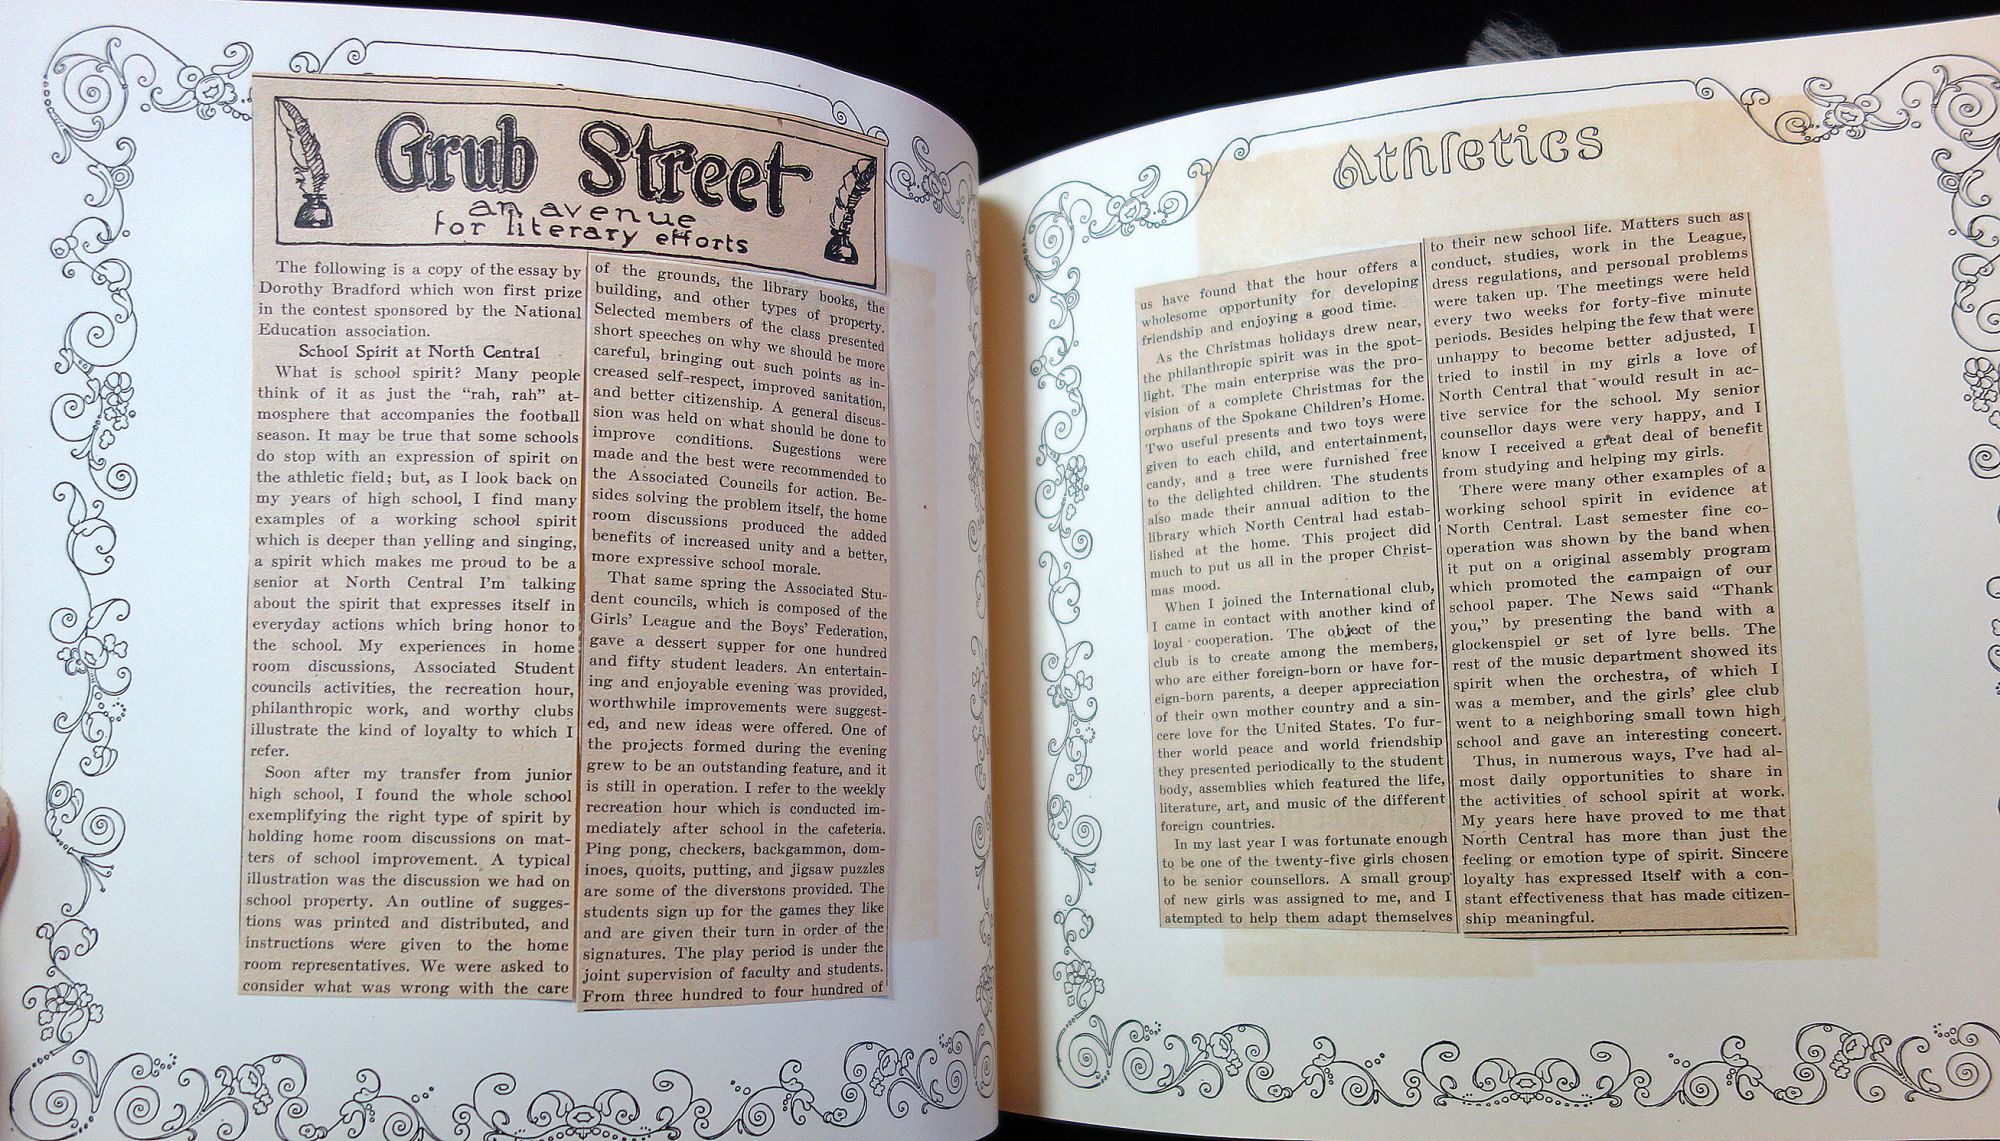 Grub Street
an avenue
for literary efforts
The following is a copy of the essay by
Dorothy Bradford which won first prize
in the contest sponsored by the National
Education association.
School Spirit at North Central
What is school spirit? Many people
think of it as just the “rah, rah” at-
mosphere that accompanies the football
season. It may be true that some schools
do stop with an expression of spirit on
the athletic field; but, as I look back on
my years of high school, I find many
examples of a working school spirit
which is deeper than yelling and singing,
a spirit which makes me proud to be a
senior at North Central I'm talking
about the spirit that expresses itself in
everyday actions which bring honor to
the school. My experiences in home
room discussions, Associated Student
councils activities, the recreation hour,
philanthropic work, and worthy clubs
illustrate the kind of loyalty to which I
refer.
Soon after my transfer from junior
high school, I found the whole school
exemplifying the right type of spirit by
holding home room discussions on mat-
ters of school improvement. A typical
illustration was the discussion we had on
school property. An outline of sugges-
tions was printed and distributed, and
instructions were given to the home
room representatives. We were asked to
consider what was wrong with the care
of the grounds, the library books, the
building, and other types of property.
Selected members of the class presented
short speeches on why we should be more
careful, bringing out such points as in-
creased self-respect, improved sanitation,
and better citizenship. A general discus-
sion was held on what should be done to
improve conditions. Sugestions were
made and the best were recommended to
the Associated Councils for action. Be-
sides solving the problem itself, the home
room discussions produced the added
benefits of increased unity and a better,
more expressive school morale.
That same spring the Associated Stu-
dent councils, which is composed of the
Girls' League and the Boys' Federation,
gave a dessert supper for one hundred
and fifty student leaders. An entertain-
ing and enjoyable evening was provided,
worthwhile improvements were suggest-
ed, and new ideas were offered. One of
the projects formed during the evening
grew to be an outstanding feature, and it
is still in operation. I refer to the weekly
recreation hour which is conducted im-
mediately after school in the cafeteria.
Ping pong, checkers, backgammon, dom-
inoes, quoits, putting, and jigsaw puzzles
are some of the diversions provided. The
students sign up for the games they like
and are given their turn in order of the
signatures. The play period is under the
joint supervision of faculty and students.
From three hundred to four hundred of
Athletics
us have found that the hour offers a
wholesome opportunity for developing
friendship and enjoying a good time.
As the Christmas holidays drew near,
the philanthropic spirit was in the spot-
light. The main enterprise was the pro-
vision of a complete Christmas for the
orphans of the Spokane Children's Home.
Two useful presents and two toys were
given to each child, and entertainment,
candy, and a tree were furnished free
to the delighted children. The students
also made their annual adition to the
library which North Central had estab-
lished at the home. This project did
much to put us all in the proper Christ-
mas mood.
When I joined the International club,
I came in contact with another kind of
loyal cooperation. The object of the
club is to create among the members,
who are either foreign-born or have for-
eign-born parents, a deeper appreciation
of their own mother country and a sin-
cere love for the United States. To fur-
ther world peace and world friendship
they presented periodically to the student
body, assemblies which featured the life,
literature, art, and music of the different
foreign countries.
In my last year I was fortunate enough
to be one of the twenty-five girls chosen
to be senior counsellors. A small group
of new girls was assigned to me, and I
atempted to help them adapt themselves
to their new school life. Matters such as
conduct, studies, work in the League,
dress regulations, and personal problems
were taken up. The meetings were held
every two weeks for forty-five minute
periods. Besides helping the few that were
unhappy to become better adjusted, I
tried to instil in my girls a love of
North Central that would result in ac-
tive service for the school. My senior
counsellor days were very happy, and I
know I received a great deal of benefit
from studying and helping my girls.
There were many other examples of a
working school spirit in evidence at
North Central. Last semester fine co-
operation was shown by the band when
it put on a original assembly program
which promoted the campaign of our
school paper. The News said “Thank
you,” by presenting the band with a
glockenspiel or set of lyre bells. The
rest of the music department showed its
spirit when the orchestra, of which I
was a member, and the girls' glee club
went to a neighboring small town high
school and gave an interesting concert.
Thus, in numerous ways, I've had al-
most daily opportunities to share in
the activities of school spirit at work.
My years here have proved to me that
North Central has more than just the
feeling or emotion type of spirit. Sincere
loyalty has expressed itself with a con-
stant effectiveness that has made citizen-
ship meaningful.